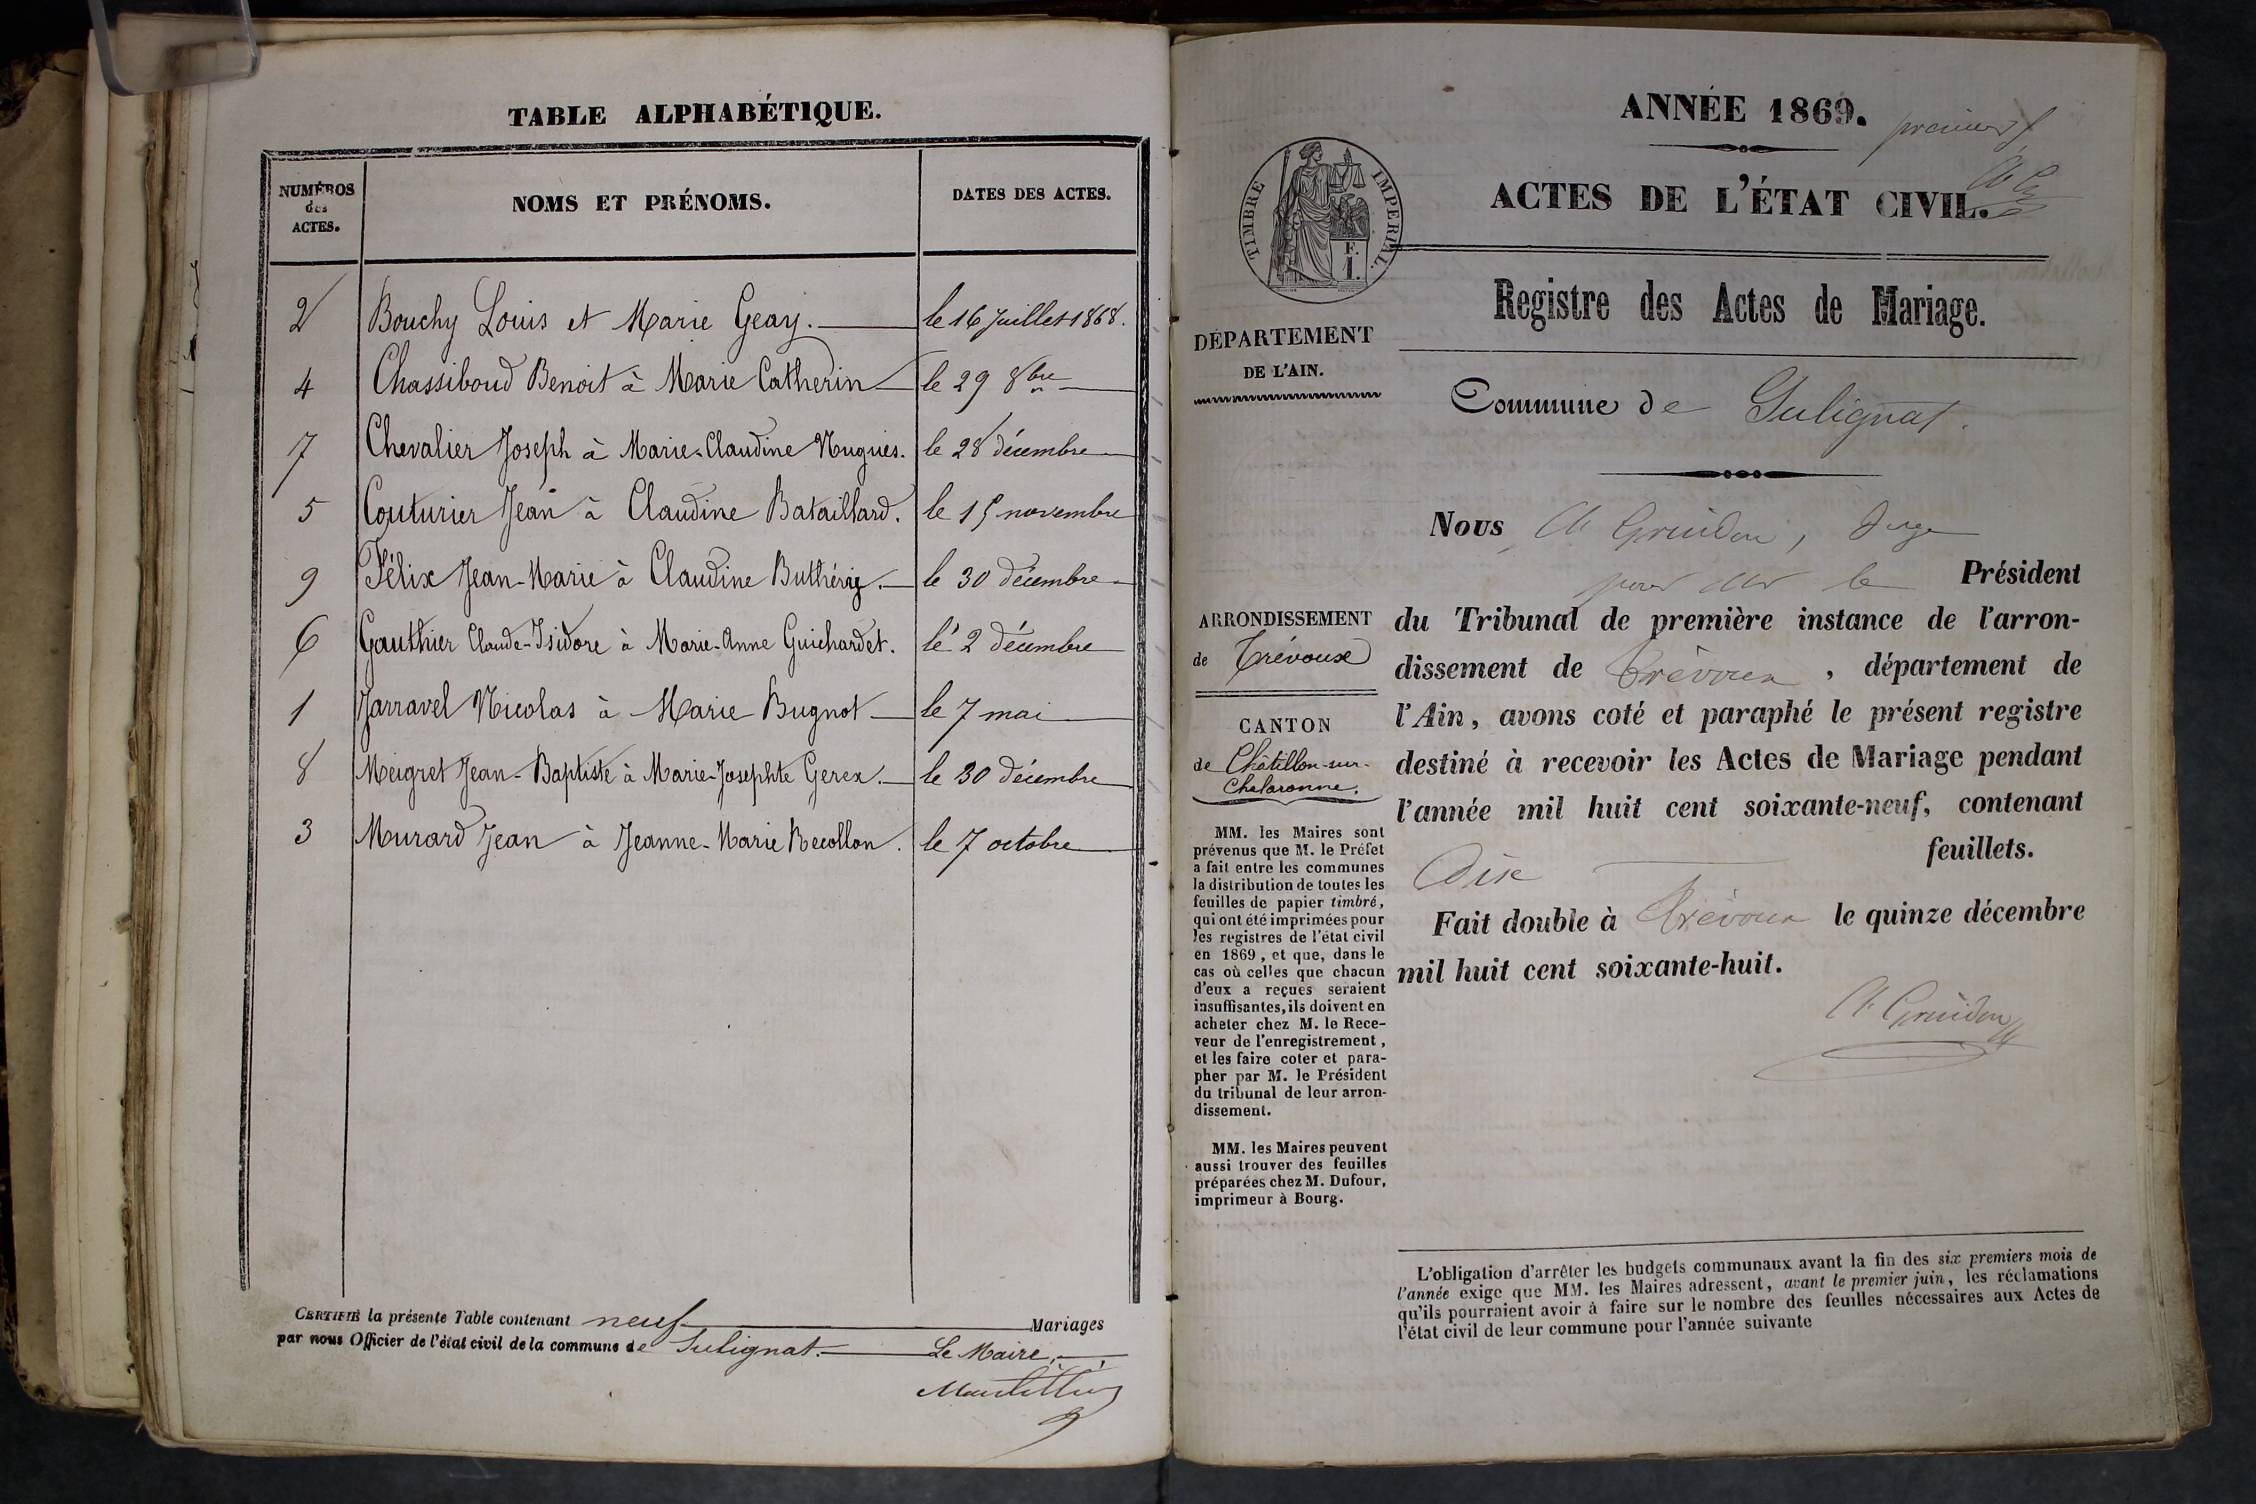 TABLE ALPHABÉTIQUE.
NUMÉROS
des
ACTES.
NOMS ET PRÉNOMS.
DATES DES ACTES.
2 Bouchy Louis et Marie Geay. le 16 Juillet 1868.
4 Chassiboud Benoit à Marie Catherin le 29 8bre
7 Chevalier Joseph à Marie-Claudine Nugues. le 28 décembre
5 Couturier Jean à Claudine Bataillard. le 15 novembre
9 Félix Jean-Marie à Claudine le 30 décembre
6 Gauthier Claude-Isidore à Marie-Anne Guichardet. le 2 décembre
1 Jarravel Nicolas à Marie Bugnot le 7 mai
8 Meigret Jean-Baptiste à Marie-Josephte Gerex. le 30 décembre
3 Murard Jean à Jeanne-Marie Recollon. le 7 octobre
CERTIFIÉ la présente Table contenant neuf Mariages
par nous Officier de l'état civil de la commune de Sulignat. Le Maire,
ANNÉE 1869.
premier
ACTES DE L'ÉTAT CIVIL.
TIMBRE IMPERIAL.
F.
1.
Registre des Actes de Mariage.
DÉPARTEMENT
DE L'AIN.
Commune de Sulignat.
ARRONDISSEMENT
de Trévoux
CANTON
de Châtillon-sur-
Chalaronne.
MM. les Maires sont
prévenus que M. le Préfet
a fait entre les communes
la distribution de toutes les
feuilles de papier timbré,
qui ont été imprimées pour
les registres de l'état civil
en 1869, et que, dans le
cas où celles que chacun
d'eux a reçues seraient
insuffisantes, ils doivent en
acheter chez M. le Rece-
veur de l'enregistrement,
et les faire coter et para-
pher par M. le Président
du tribunal de leur arron-
dissement.
MM. les Maires peuvent
aussi trouver des feuilles
préparées chez M. Dufour,
imprimeur à Bourg.
Nous Ch Grindon, Juge
pour Mr le Président
du Tribunal de première instance de l'arron-
dissement de Trévoux, département de
l'Ain, avons coté et paraphé le présent registre
destiné à recevoir les Actes de Mariage pendant
l'année mil huit cent soixante-neuf, contenant
Dix feuillets.
Fait double à Trévoux le quinze décembre
mil huit cent soixante-huit.
Ch Grindon
L'obligation d'arrêter les budgets communaux avant la fin des six premiers mois de
l'année exige que MM. les Maires adressent, avant le premier juin, les réclamations
qu'ils pourraient avoir à faire sur le nombre des feuilles nécessaires aux Actes de
l'état civil de leur commune pour l'année suivante